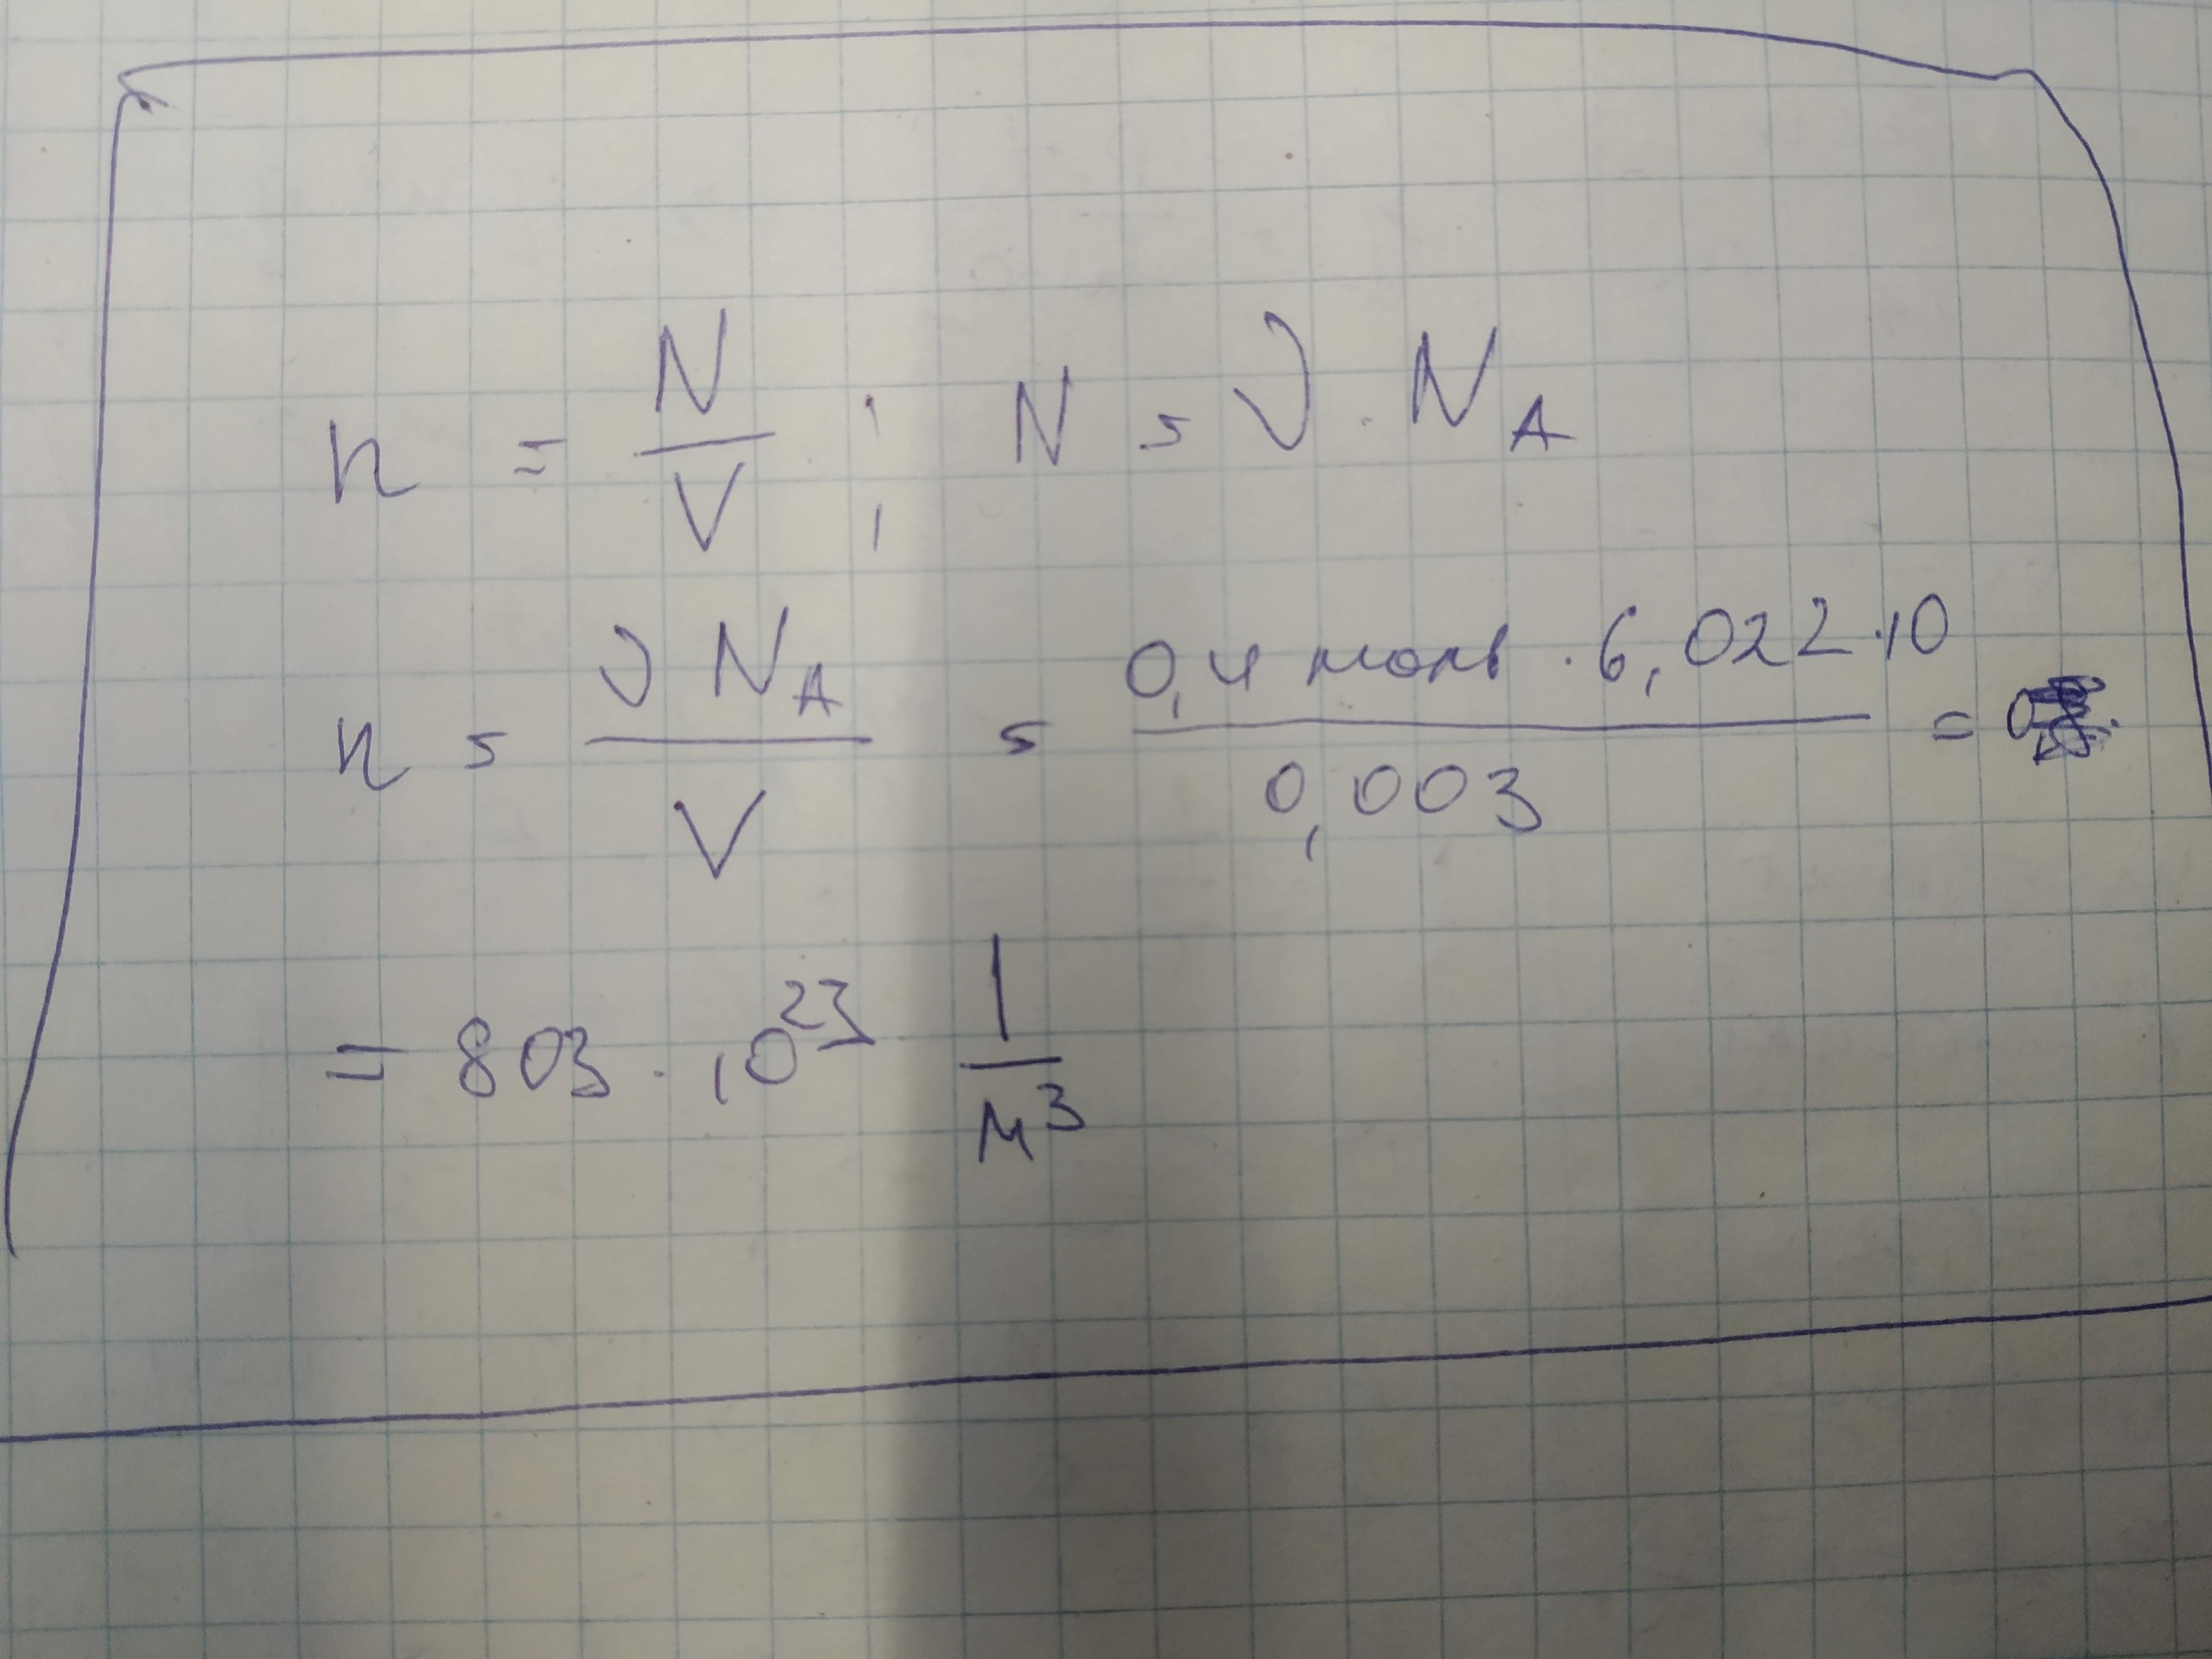 n = N/V ; N = ν · N_A
n = ν N_A / V = 0,4 моль · 6,022 · 10 / 0,003 =
= 803 · 10^23 1/м^3